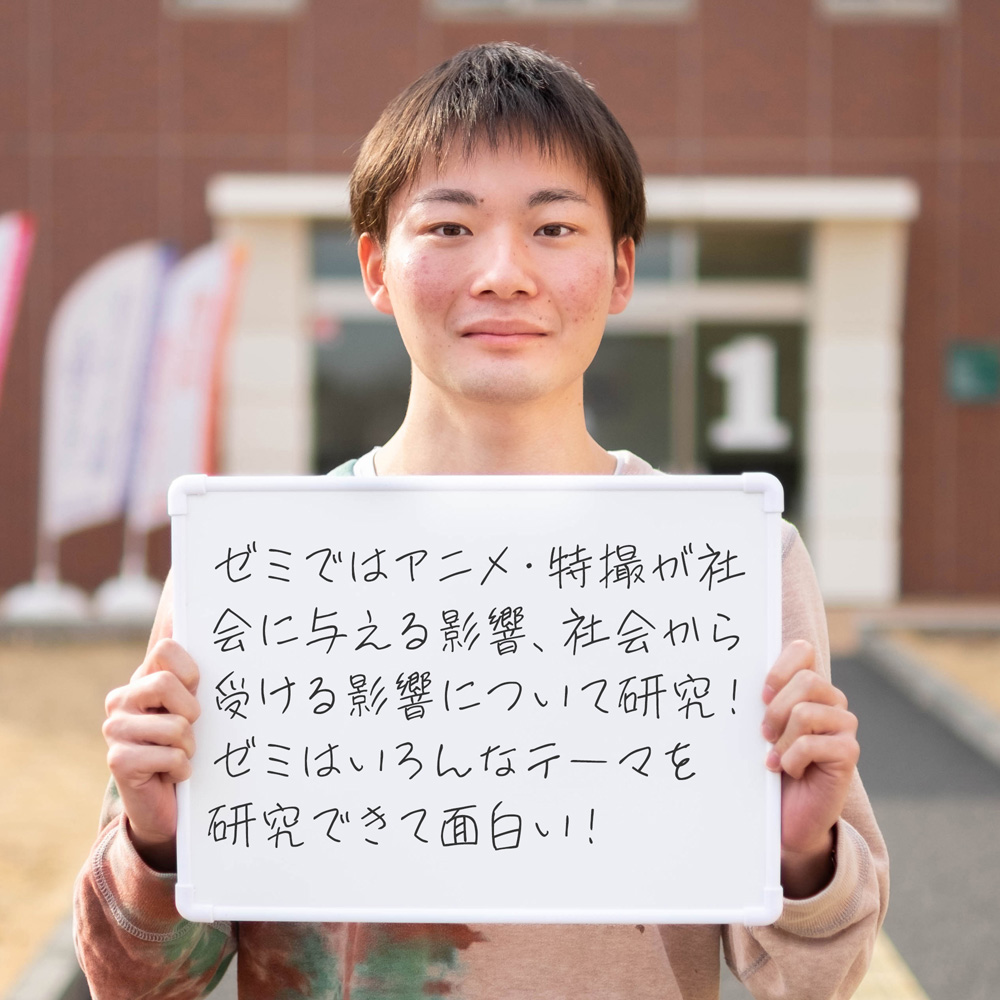 ゼミではアニメ・特撮が社
会に与える影響、社会から
受ける影響について研究！
ゼミはいろんなテーマを
研究できて面白い！
1